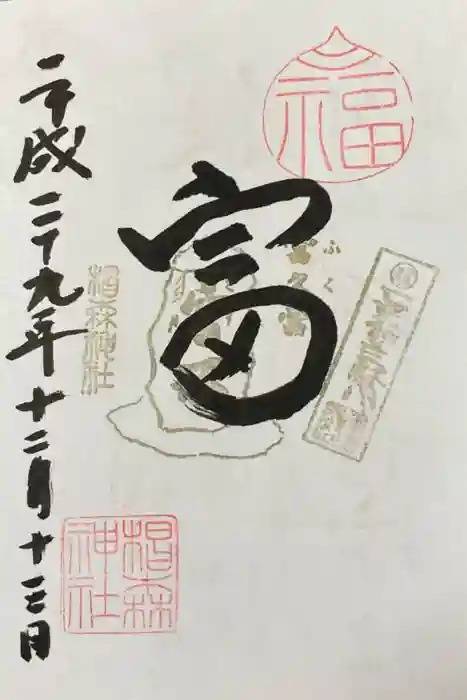 福
富
ふく
富久富
椙森神社
平成二十九年十二月十三日
椙森神社